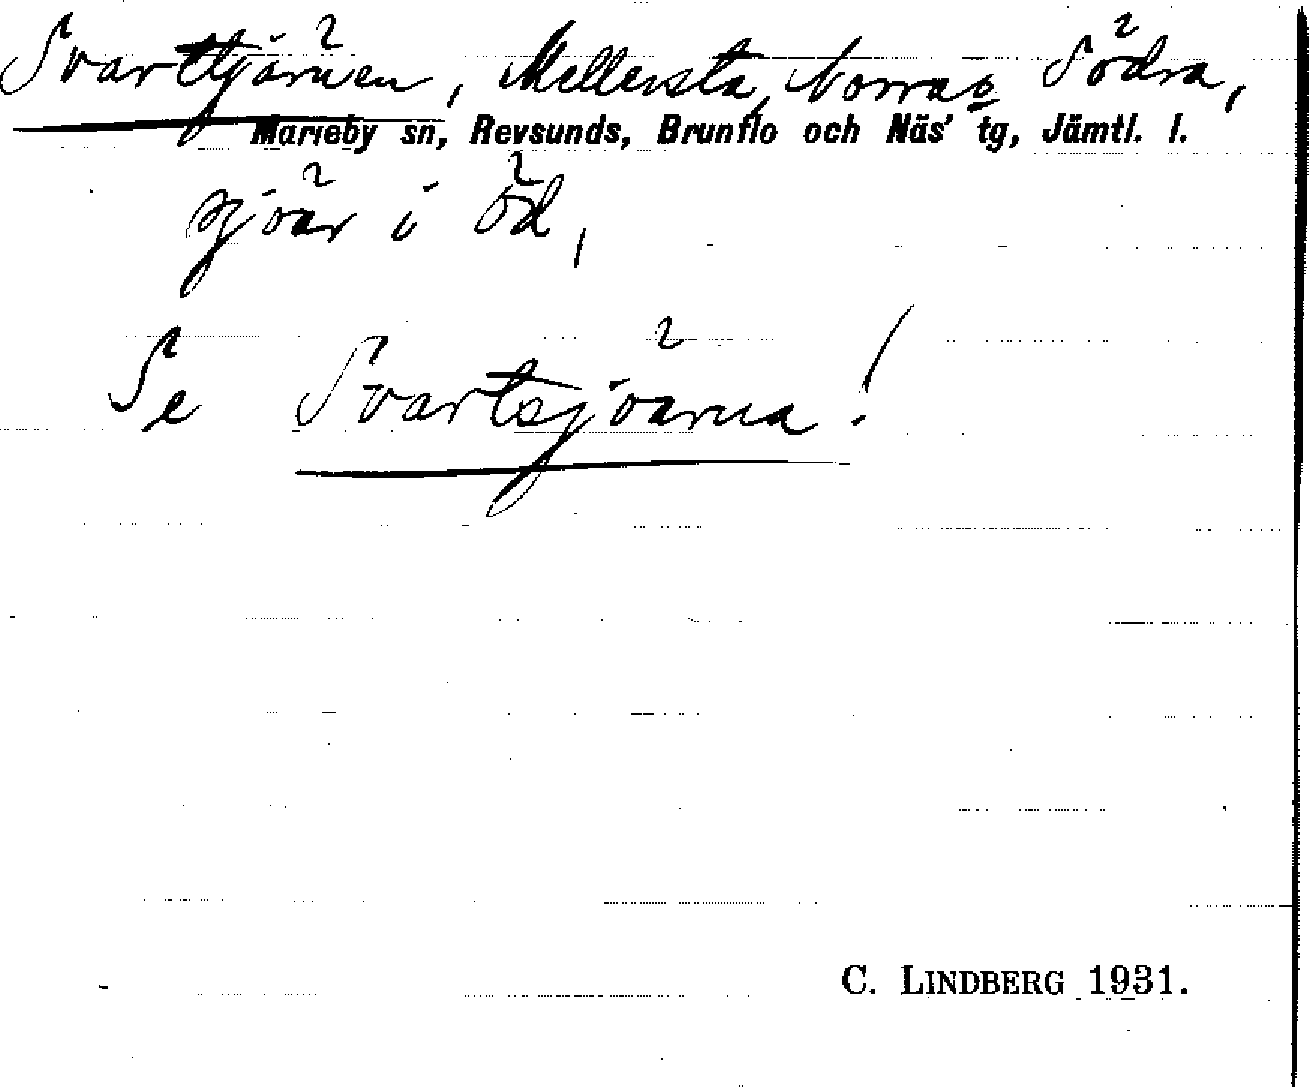 Svarttjärnen, Mellersta, Norra o Södra,
Marieby sn, Revsunds, Brunflo och Näs' tg, Jämtl. l.
sjöar i öd,
Se Svartsjöarna!
C. LINDBERG 1931.